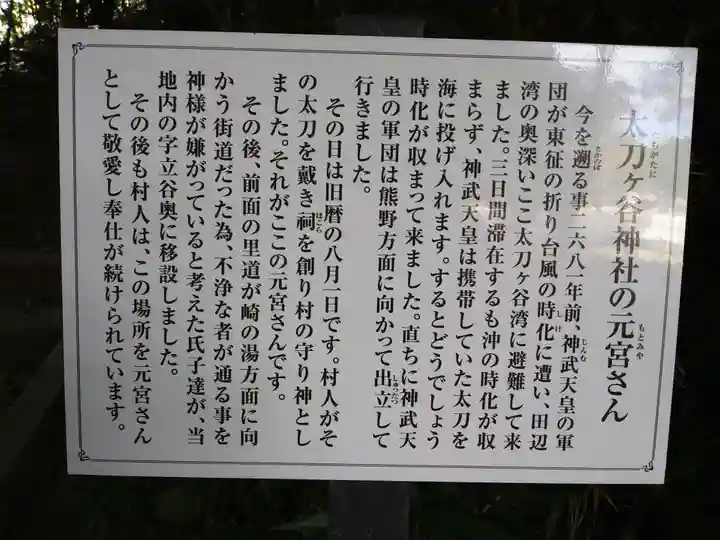 太刀ヶ谷神社の元宮さん
今を遡る事二六八一年前、神武天皇の軍
団が東征の折り台風の時化に遭い、田辺
湾の奥深いここ太刀ヶ谷湾に避難して来
ました。三日間滞在するも沖の時化が収
まらず、神武天皇は携帯していた太刀を
海に投げ入れます。するとどうでしょう
時化が収まって来ました。直ちに神武天
皇の軍団は熊野方面に向かって出立して
行きました。
その日は旧暦の八月一日です。村人がそ
の太刀を戴き祠を創り村の守り神とし
ました。それがここの元宮さんです。
その後、前面の里道が崎の湯方面に向
かう街道だった為、不浄な者が通る事を
神様が嫌がっていると考えた氏子達が、当
地内の字立谷奥に移設しました。
その後も村人は、この場所を元宮さん
として敬愛し奉仕が続けられています。